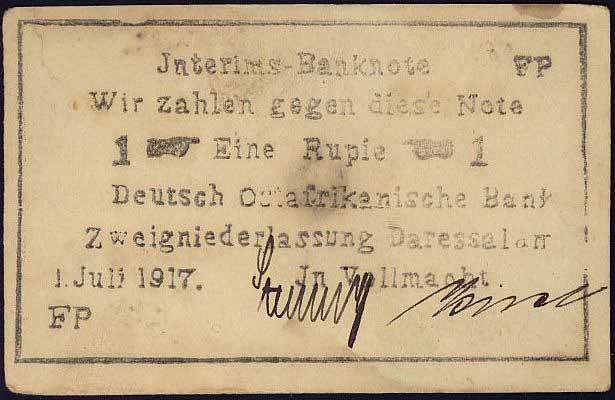 Interims-Banknote FP
Wir zahlen gegen diese Note
1 Eine Rupie 1
Deutsch Ostafrikanische Bank
Zweigniederlassung Daressalam
1. Juli 1917. In Vollmacht
FP